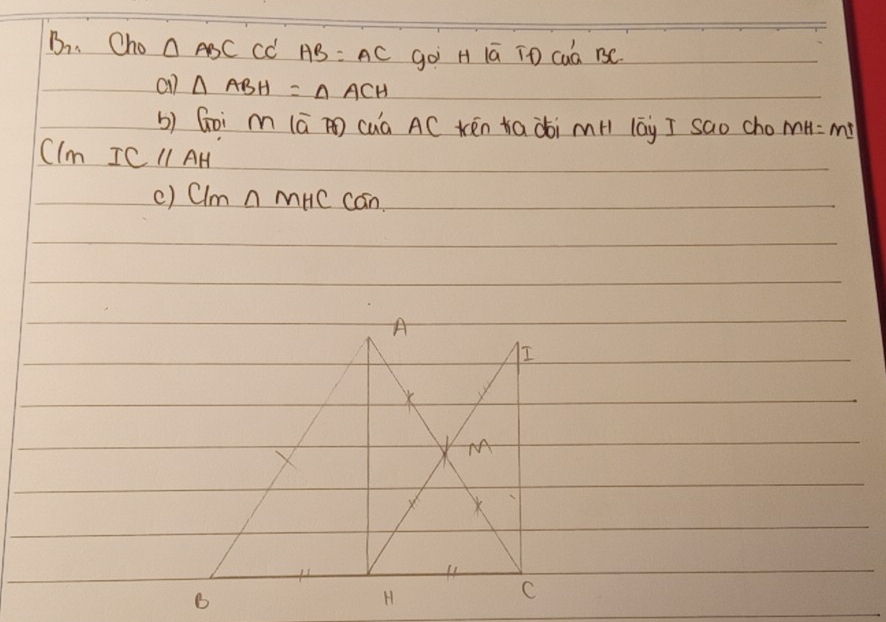 B₂. Cho Δ ABC có AB = AC gọi H là TĐ của BC.
a) Δ ABH = Δ ACH
b) Gọi M là TĐ của AC trên tia đối MH lấy I sao cho MH = MI
C/m IC // AH
c) C/m Δ MHC cân.
A
I
M
B
H
C